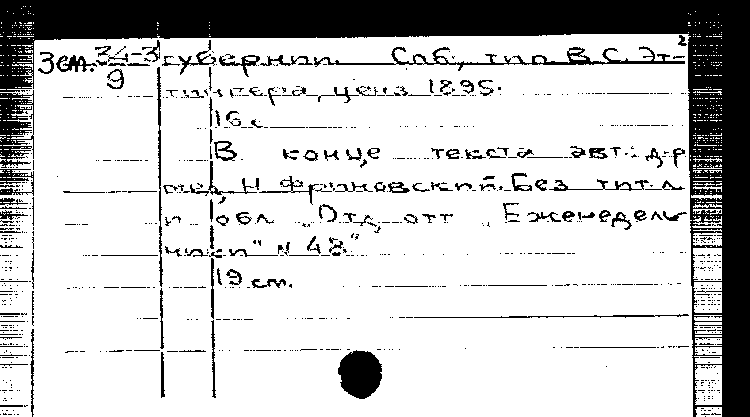 2
3 ст. 34-3/9 губернии. Спб, тип В. С. Эт-
тингера, ценз 1895.
16 с
В конце текста авт.: д-р
мед. Н. Фриновский. Без тит. л
и обл „Отд. отт „Еженедель
ника" N 48."
19 ст.